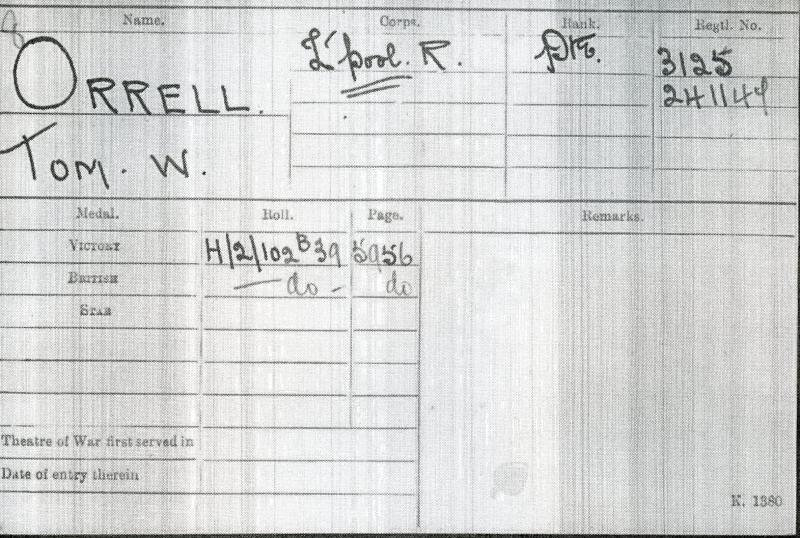 Name. Corps. Rank. Regtl. No.
ORRELL. L'pool. R. Pte. 3125
241144
Tom. W.
Medal. Roll. Page. Remarks.
Victory H/2/102B39 5956
British — do — do
Star
Theatre of War first served in
Date of entry therein
K. 1380